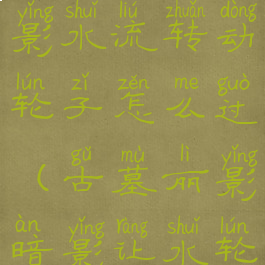 yǐng shuǐ liú zhuǎn dòng
影水流转动
lún zǐ zěn me guò
轮子怎么过
gǔ mù lì yǐng
（古墓丽影
àn yǐng ràng shuǐ lún
暗影让水轮